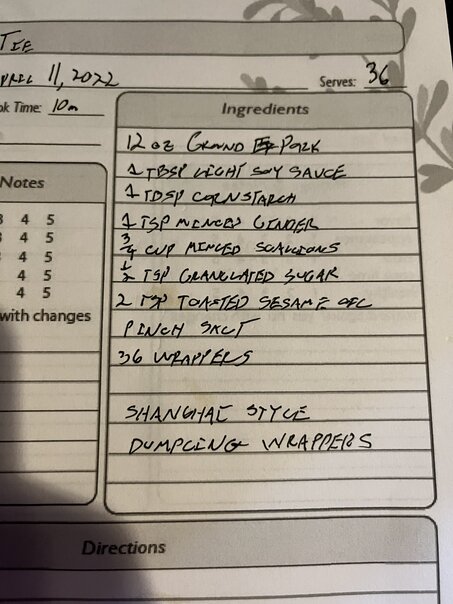 April 11, 2022
Serves: 36
ok Time: 10m
Ingredients
12 oz GROUND PORK
1 TBSP LIGHT SOY SAUCE
1 TBSP CORNSTARCH
1 TSP MINCED GINGER
3/4 CUP MINCED SCALLIONS
1/2 TSP GRANULATED SUGAR
2 TSP TOASTED SESAME OIL
PINCH SALT
36 WRAPPERS
SHANGHAI STYLE
DUMPLING WRAPPERS
Notes
3 4 5
3 4 5
4 5
4 5
4 5
with changes
Directions